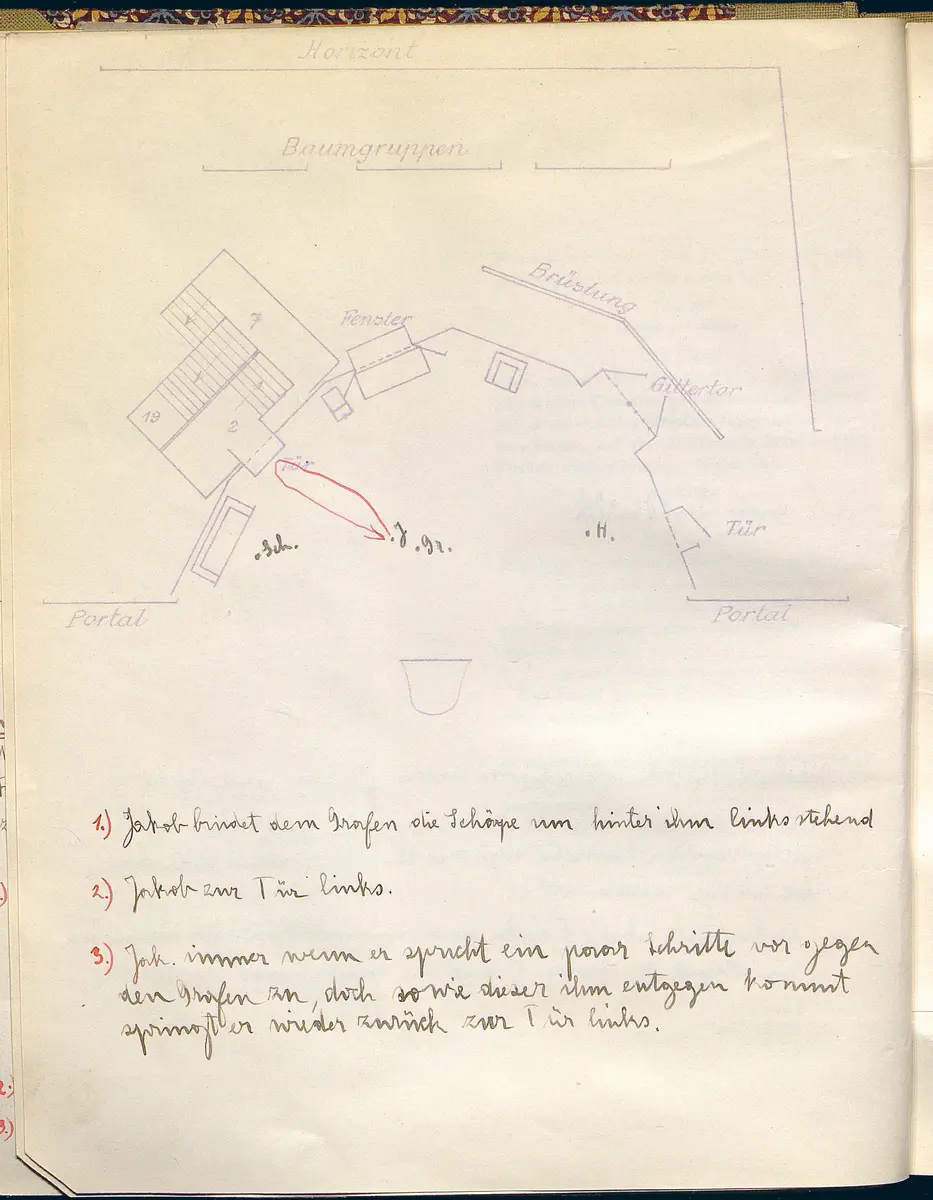 Horizont
Baumgruppen
Brüstung
7
Fenster
Gittertor
19
2
Tür
Tür
.Sch.
.J
.Gr.
.H.
Portal
Portal
1.) Jakob bindet dem Grafen die Schärpe um hinter ihm links stehend
2.) Jakob zur Tür links.
3.) Jak. immer wenn er spricht ein paar Schritte vor gegen
den Grafen zu, doch sowie dieser ihm entgegen kommt
springt er wieder zurück zur Tür links.
2.)
3.)